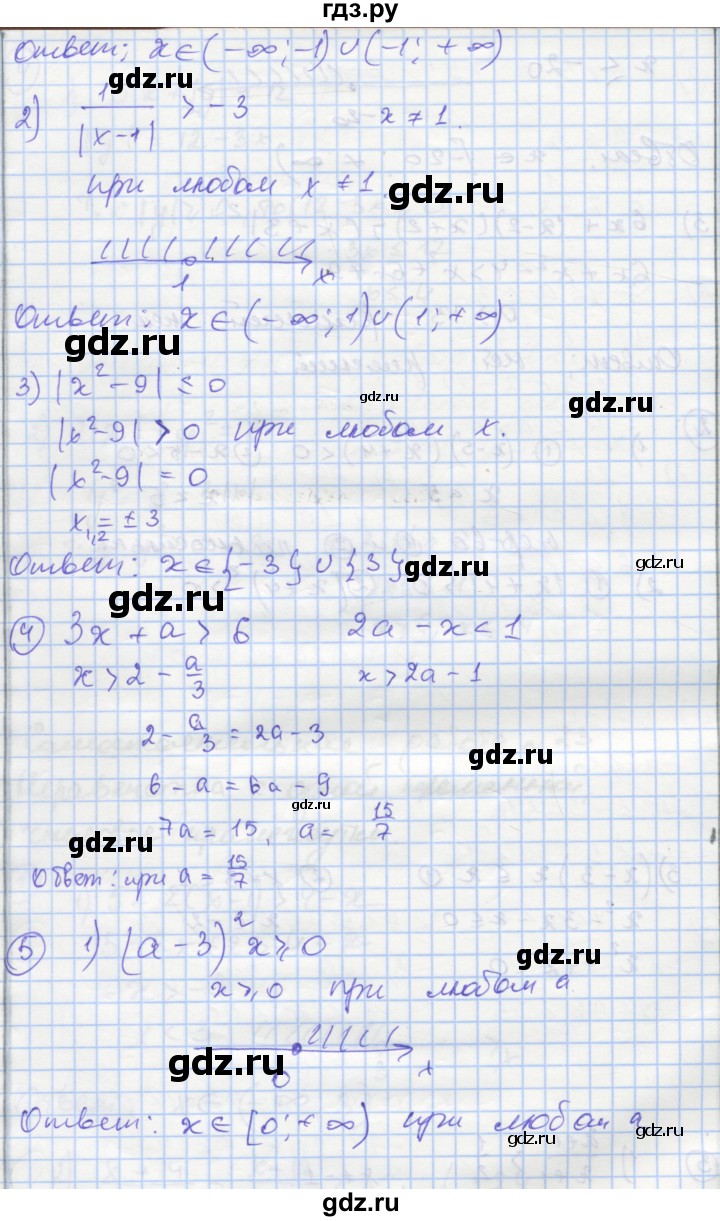 гдз.ру
Ответ: x ∈ (-∞; -1) ∪ (-1; +∞)
gdz.ru
2) 1/|x-1| > -3   x ≠ 1.
при любом x ≠ 1
gdz.ru
1   x
Ответ: x ∈ (-∞; 1) ∪ (1; +∞)
gdz.ru
3) |x²-9| ≤ 0
gdz.ru
gdz.ru
|x²-9| > 0 при любом x.
|x²-9| = 0
x₁,₂ = ± 3
Ответ: x ∈ {-3} ∪ {3}
gdz.ru
gdz.ru
④ 3x + a > 6   2a - x < 1
x > 2 - a/3   x > 2a - 1
2 - a/3 = 2a - 3
gdz.ru
6 - a = 6a - 9
gdz.ru
7a = 15, a = 15/7
gdz.ru
Ответ: при a = 15/7
⑤ 1) (a-3)²x ≥ 0
gdz.ru
x ≥ 0 при любом a
gdz.ru
0   x
Ответ: x ∈ [0; +∞) при любом a
gdz.ru
gdz.ru
gdz.ru